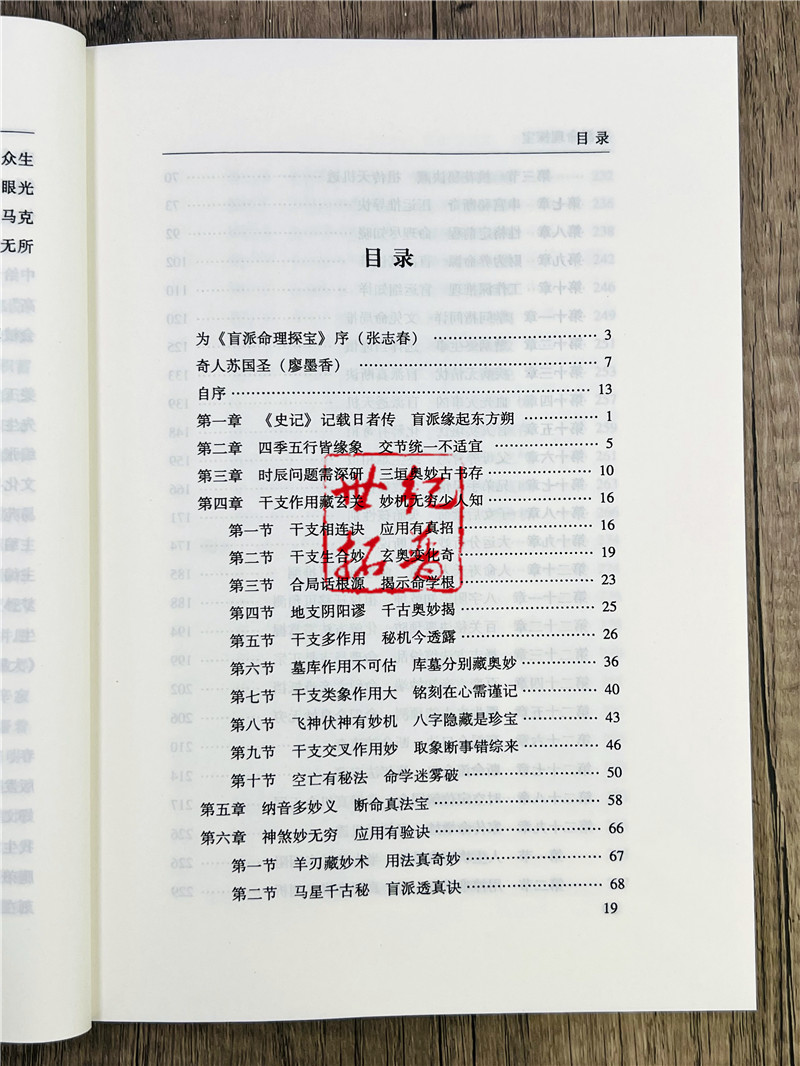 众生
眼光
马克
无所
目录
目录
为《盲派命理探宝》序（张志春） ………………… 3
奇人苏国圣（廖墨香） ………………… 7
自序 ………………… 13
第一章 《史记》记载日者传 盲派缘起东方朔 ………… 1
第二章 四季五行皆缘象 交节统一不适宜 ………… 5
第三章 时辰问题需深研 三垣奥妙古书存 ………… 10
第四章 干支作用藏玄关 妙机无穷少人知 ………… 16
第一节 干支相连诀 应用有真招 ………… 16
第二节 干支生合妙 玄奥变化奇 ………… 19
第三节 合局话根源 揭示命学根 ………… 23
第四节 地支阴阳谬 千古奥妙揭 ………… 25
第五节 干支多作用 秘机今透露 ………… 26
第六节 墓库作用不可估 库墓分别藏奥妙 ………… 36
第七节 干支类象作用大 铭刻在心需谨记 ………… 40
第八节 飞神伏神有妙机 八字隐藏是珍宝 ………… 43
第九节 干支交叉作用妙 取象断事错综来 ………… 46
第十节 空亡有秘法 命学迷雾破 ………… 50
第五章 纳音多妙义 断命真法宝 ………… 58
第六章 神煞妙无穷 应用有验诀 ………… 66
第一节 羊刃藏妙术 用法真奇妙 ………… 67
第二节 马星千古秘 盲派透真诀 ………… 68
19
世纪
拓普